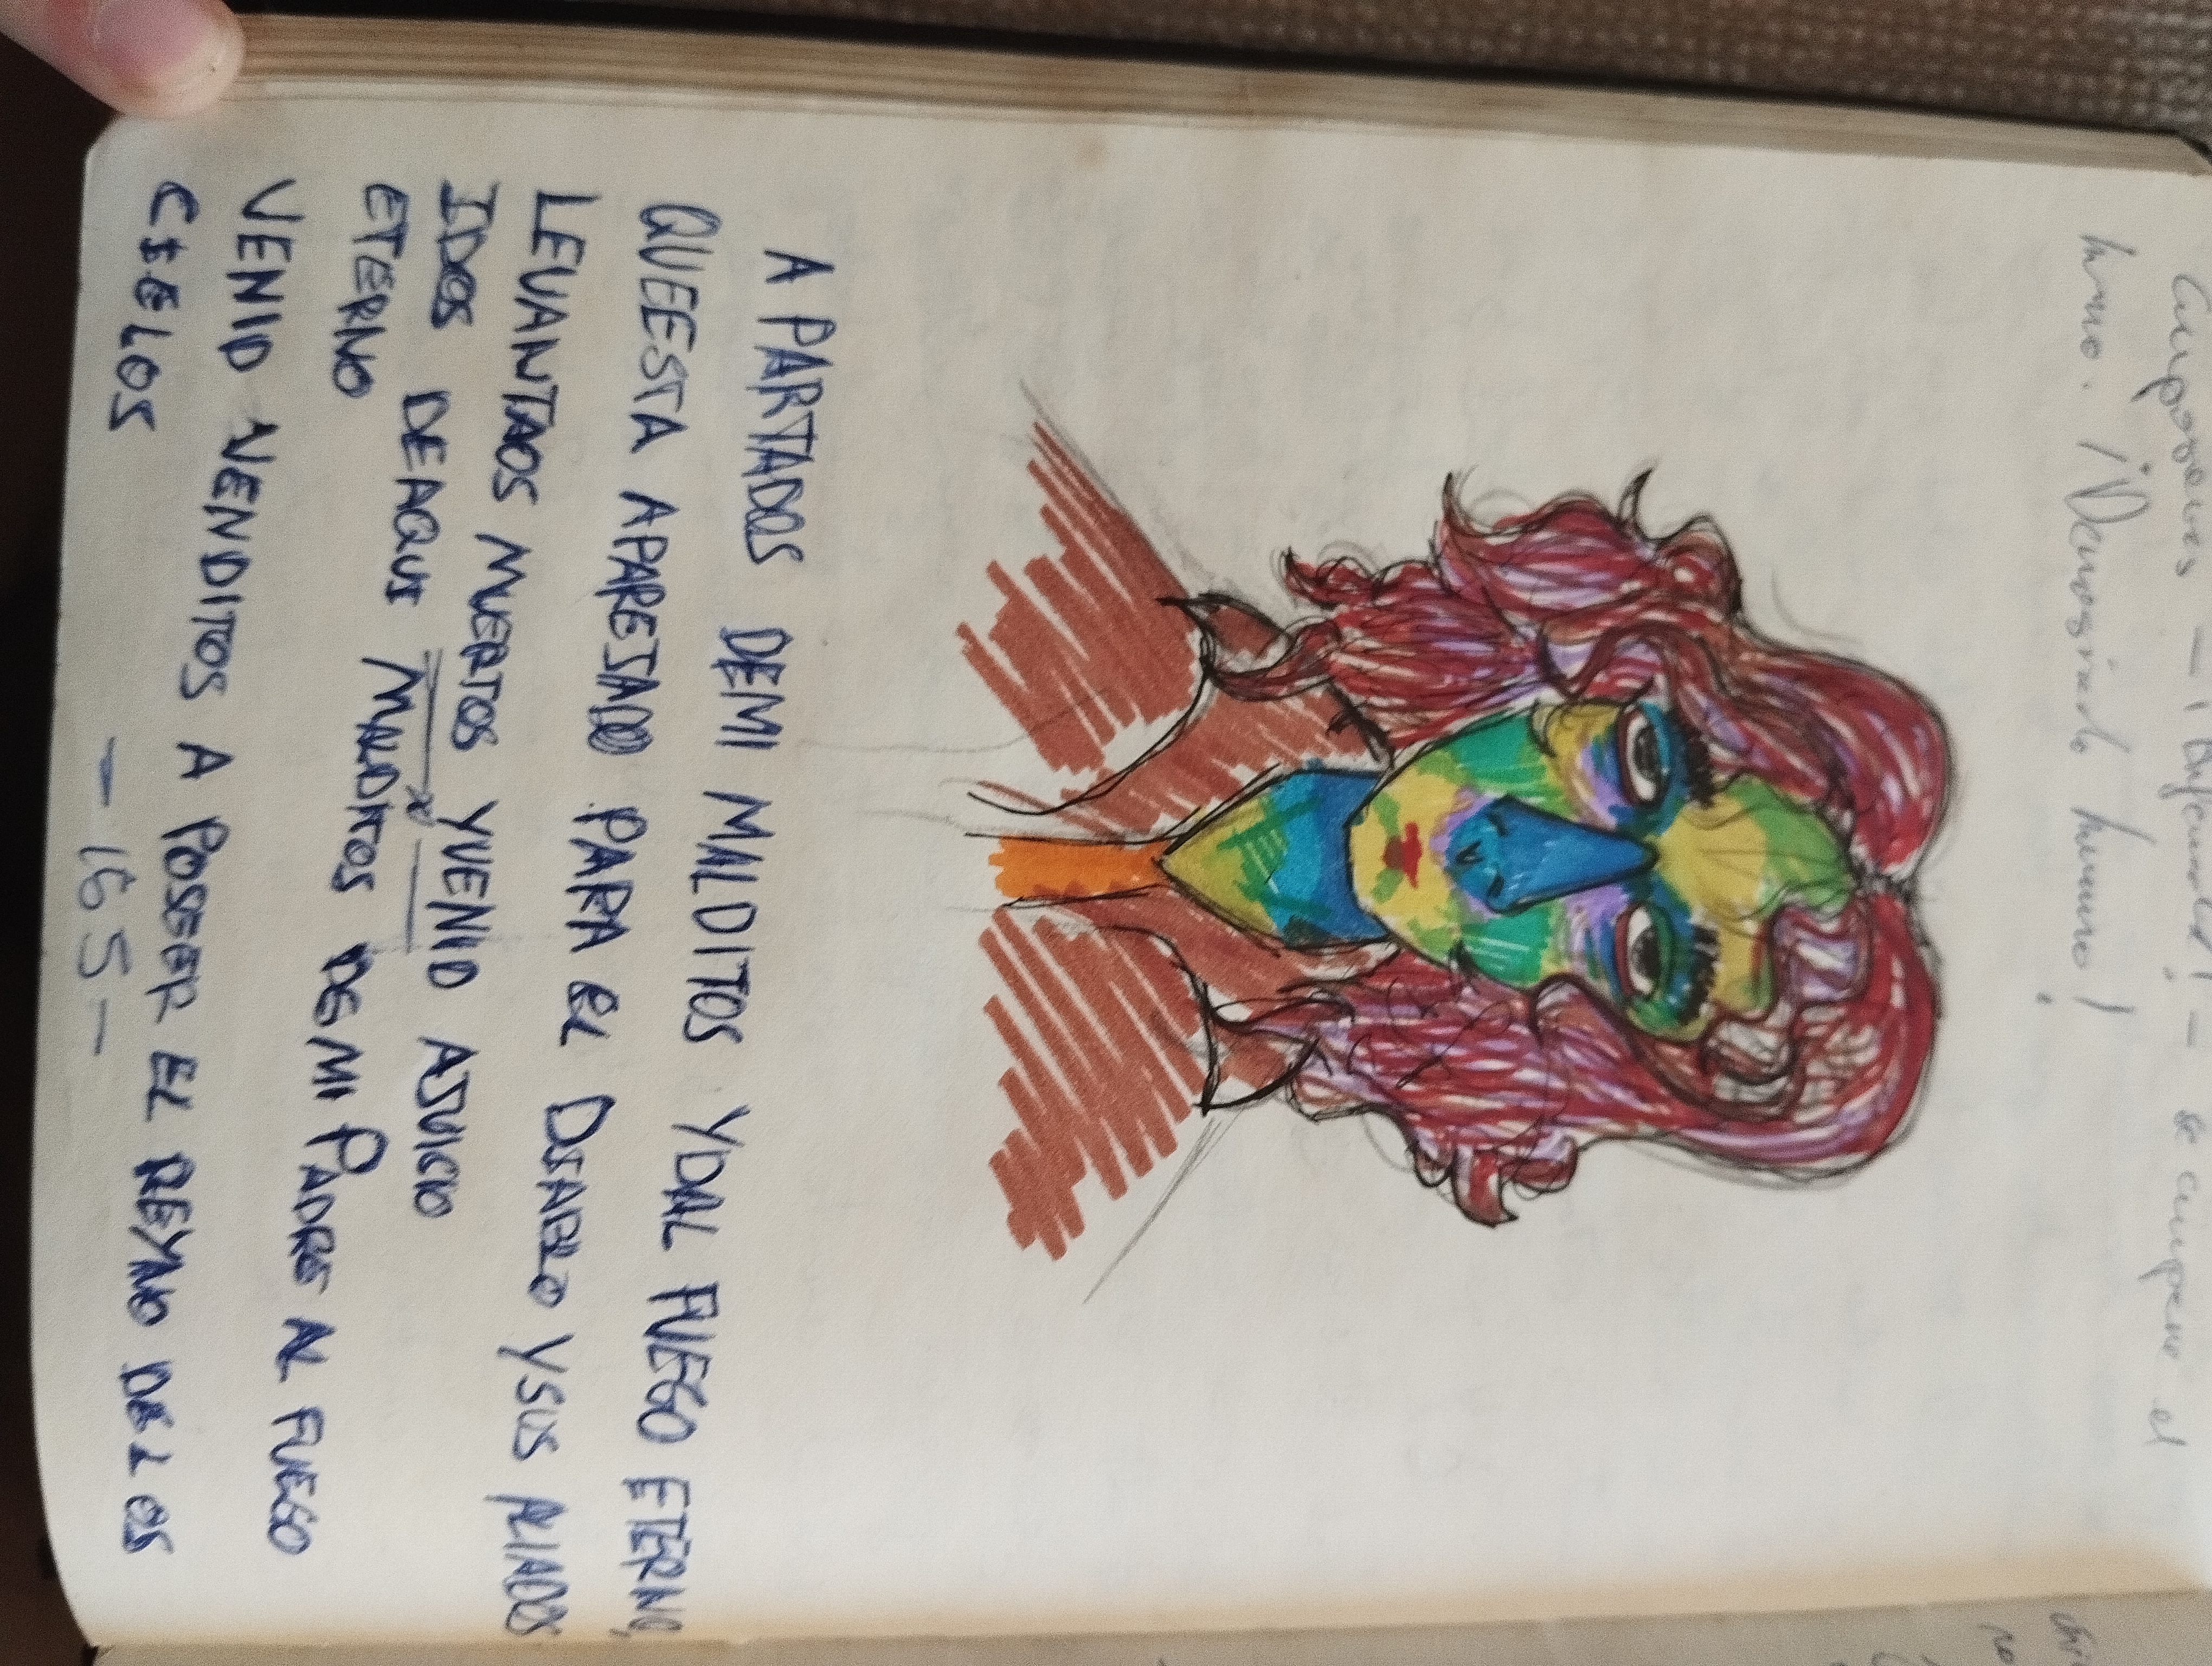 — ¡Difamala! — se compone el
humo. ¡Demasiado humo!
APARTADOS DEMI MALDITOS YDAL FUEGO ETERNO,
QUEESTA APAREJADO PARA EL DIABLO YSUS ALIADOS
LEVANTAOS MUERTOS YVENID AJUICIO
IDOS DEAQUI MALDITOS DE MI PADRE AL FUEGO
ETERNO
VENID VENDITOS A POSEER EL REYNO DE LOS
CIELOS
— 165 —